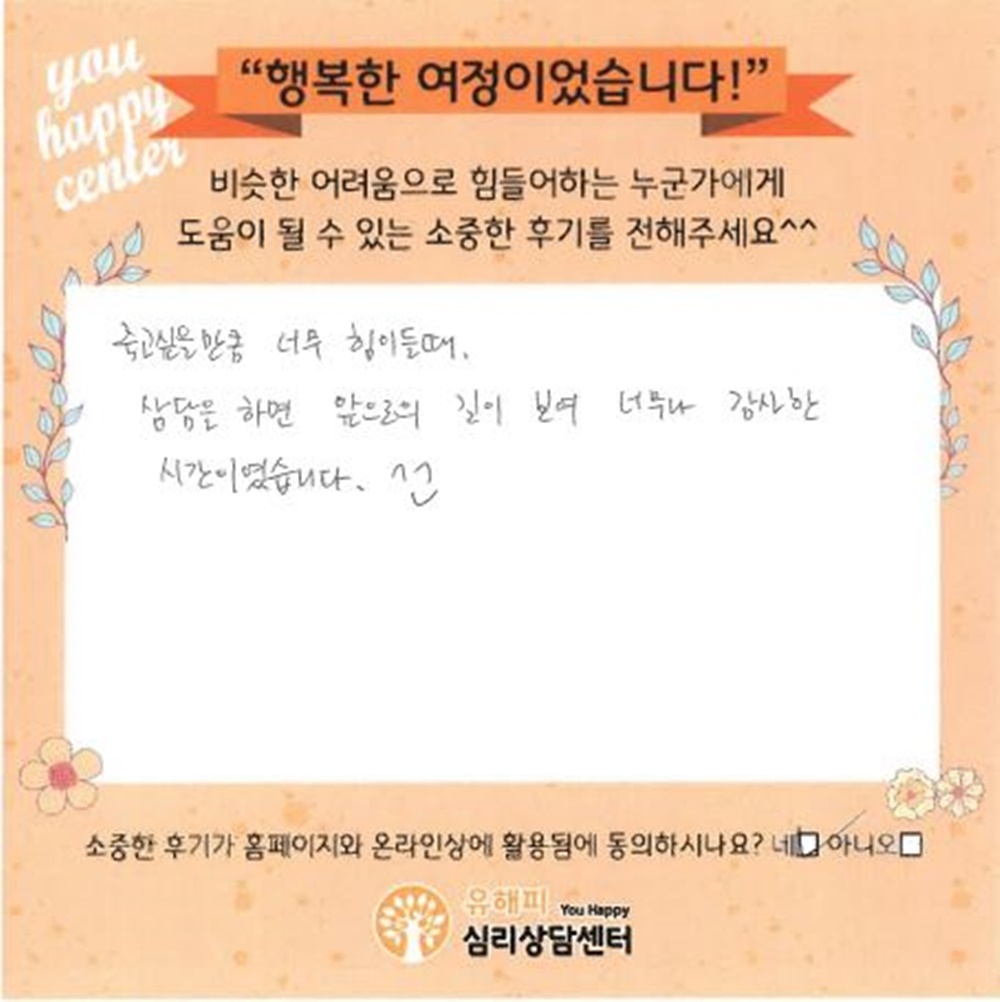 you
happy
center
“행복한 여정이었습니다!”
비슷한 어려움으로 힘들어하는 누군가에게
도움이 될 수 있는 소중한 후기를 전해주세요^^
죽고싶을만큼 너무 힘이들때.
상담을 하면 앞으로의 길이 보여 너무나 감사한
시간이였습니다.
소중한 후기가 홈페이지와 온라인상에 활용됨에 동의하시나요? 네 아니오
유해피 You Happy
심리상담센터